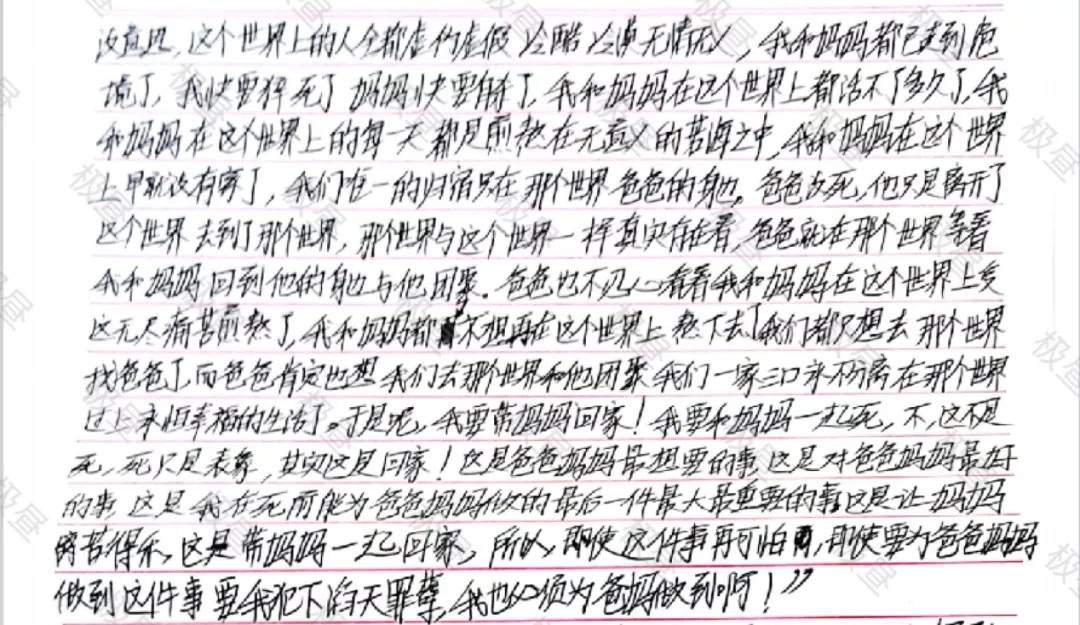 没意思,这个世界上的人全都虚伪虚假 冷酷冷漠无情无义,我和妈妈都已走到危
境了,我快要猝死了 妈妈快要自杀了,我和妈妈在这个世界上都活不了多久了,我
和妈妈在这个世界上的每一天都是煎熬在无意义的苦海之中,我和妈妈在这个世界
上早就没有家了,我们唯一的归宿只在那个世界爸爸的身边。爸爸没死,他只是离开了
这个世界去到了那个世界,那个世界与这个世界一样真实存在着,爸爸就在那个世界等着
我和妈妈回到他的身边与他团聚。爸爸也不忍心看着我和妈妈在这个世界上受
这无尽痛苦煎熬了,我和妈妈都不想再在这个世界上熬下去了我们都只想去那个世界
找爸爸了,而爸爸肯定也想我们去那个世界和他团聚 我们一家三口永不分离在那个世界
过上永恒幸福的生活了。于是呢,我要带妈妈回家!我要和妈妈一起死,不,这不是
死,死只是表象,其实这是回家!这是爸爸妈妈最想要的事 这是对爸爸妈妈最好
的事 这是我在死前能为爸爸妈妈做的最后一件最大最重要的事 这是让妈妈
离苦得乐,这是带妈妈一起回家,所以,即使这件事再可怕,即使要为爸爸妈妈
做到这件事要我犯下滔天罪孽,我也必须为爸妈做到啊!”
极昼